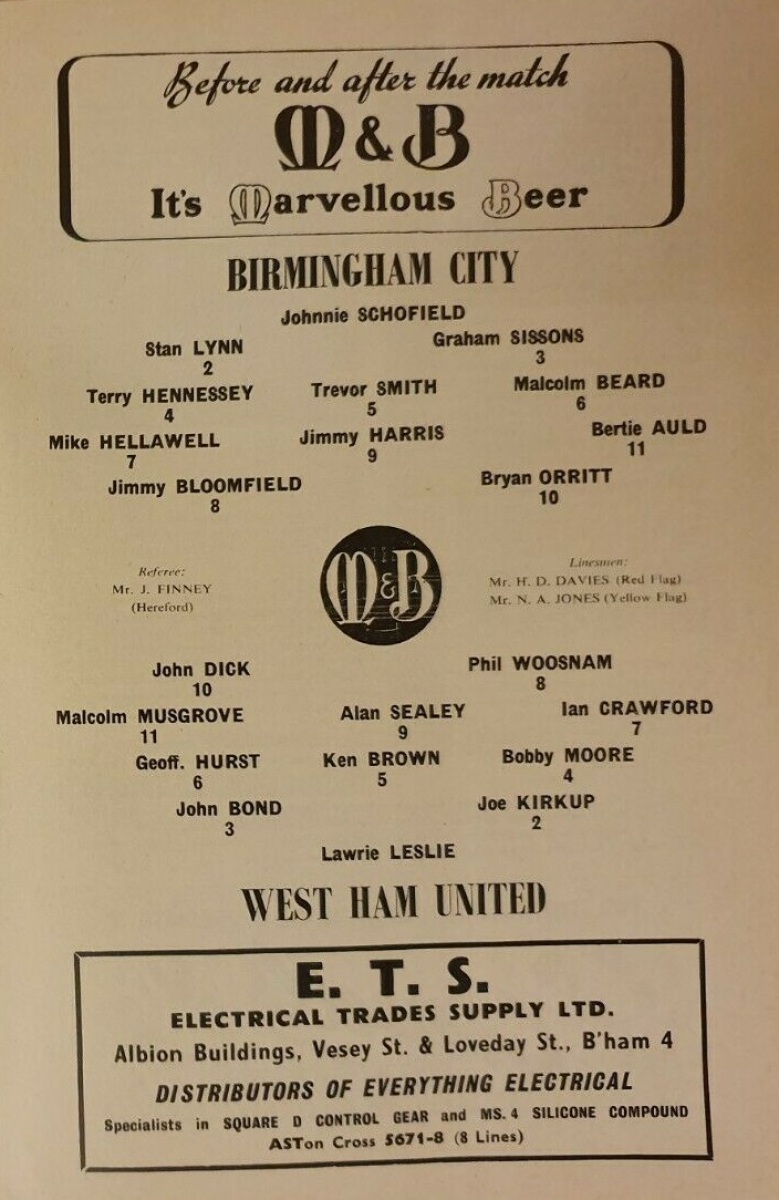 Before and after the match
M & B
It's Marvellous Beer
BIRMINGHAM CITY
Johnnie SCHOFIELD
Stan LYNN Graham SISSONS
2 3
Terry HENNESSEY Trevor SMITH Malcolm BEARD
4 5 6
Mike HELLAWELL Jimmy HARRIS Bertie AULD
7 9 11
Jimmy BLOOMFIELD Bryan ORRITT
8 10
Referee:
Mr. J. FINNEY
(Hereford)
M&B
Linesmen:
Mr. H. D. DAVIES (Red Flag)
Mr. N. A. JONES (Yellow Flag)
John DICK Phil WOOSNAM
10 8
Malcolm MUSGROVE Alan SEALEY Ian CRAWFORD
11 9 7
Geoff. HURST Ken BROWN Bobby MOORE
6 5 4
John BOND Joe KIRKUP
3 2
Lawrie LESLIE
WEST HAM UNITED
E. T. S.
ELECTRICAL TRADES SUPPLY LTD.
Albion Buildings, Vesey St. & Loveday St., B'ham 4
DISTRIBUTORS OF EVERYTHING ELECTRICAL
Specialists in SQUARE D CONTROL GEAR and MS. 4 SILICONE COMPOUND
ASTon Cross 5671-8 (8 Lines)